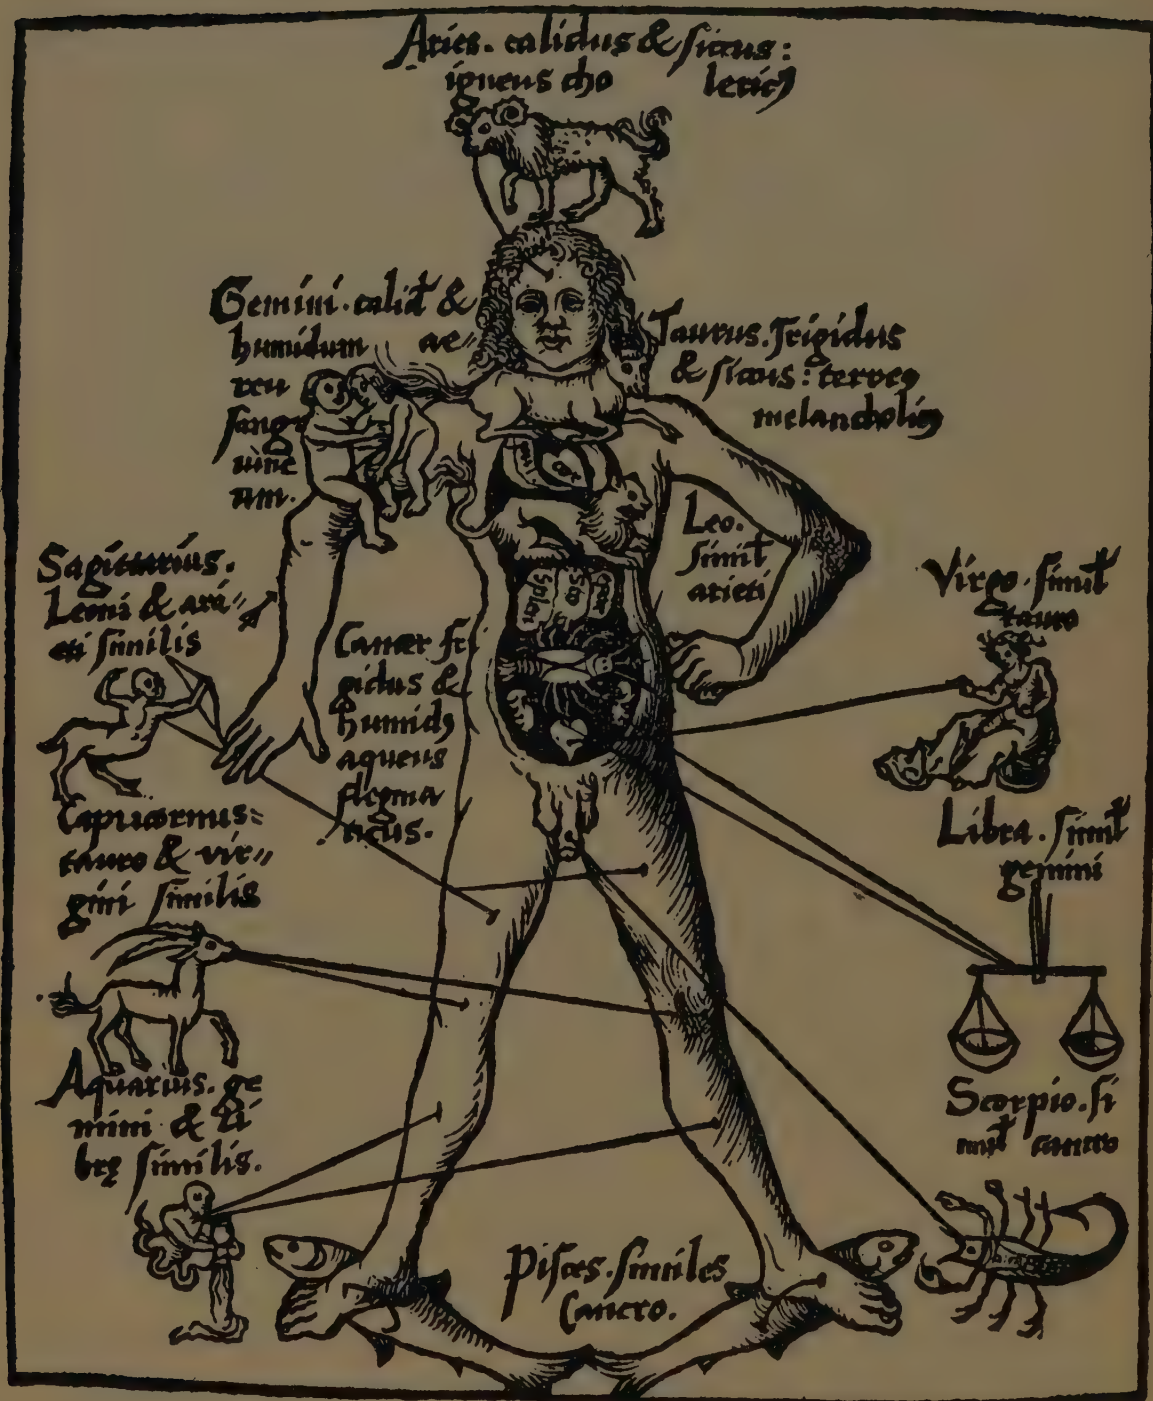 Aries. calidus & siccus:
igneus cho lericꝰ
Gemini. calid &
humidum ae
reu
sangu
inine
um.
Taurus. frigidus
& siccus: terreꝰ
melancholiꝰ
Leo.
simil
arieti
Sagittarius.
Leoni & ari〃
eti similis
Cancer fri
gidus &
humidꝰ
aqueus
flegma
ticus.
Virgo. simil
tauro
Capricornus:
tauro & vir〃
gini similis
Libra. simil
gemini
Aquarius. ge
mini & li
brę similis.
Scorpio. si
mil cancro
Pisces. similes
Cancro.